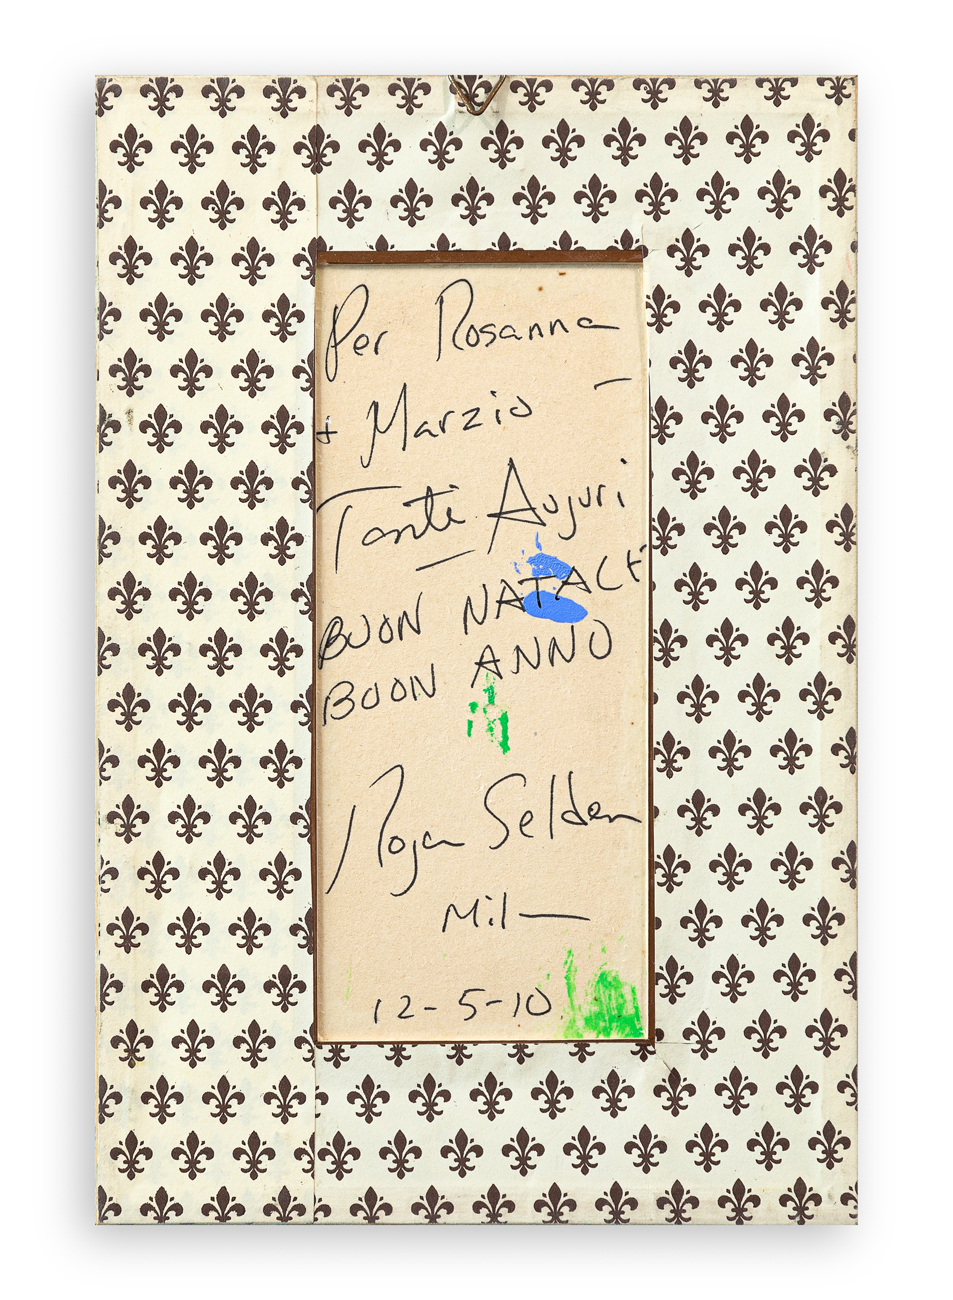 Per Rosanna
+ Marzio –
Tanti Auguri –
BUON NATALE
BUON ANNO
Roger Selden
Mil—
12-5-10